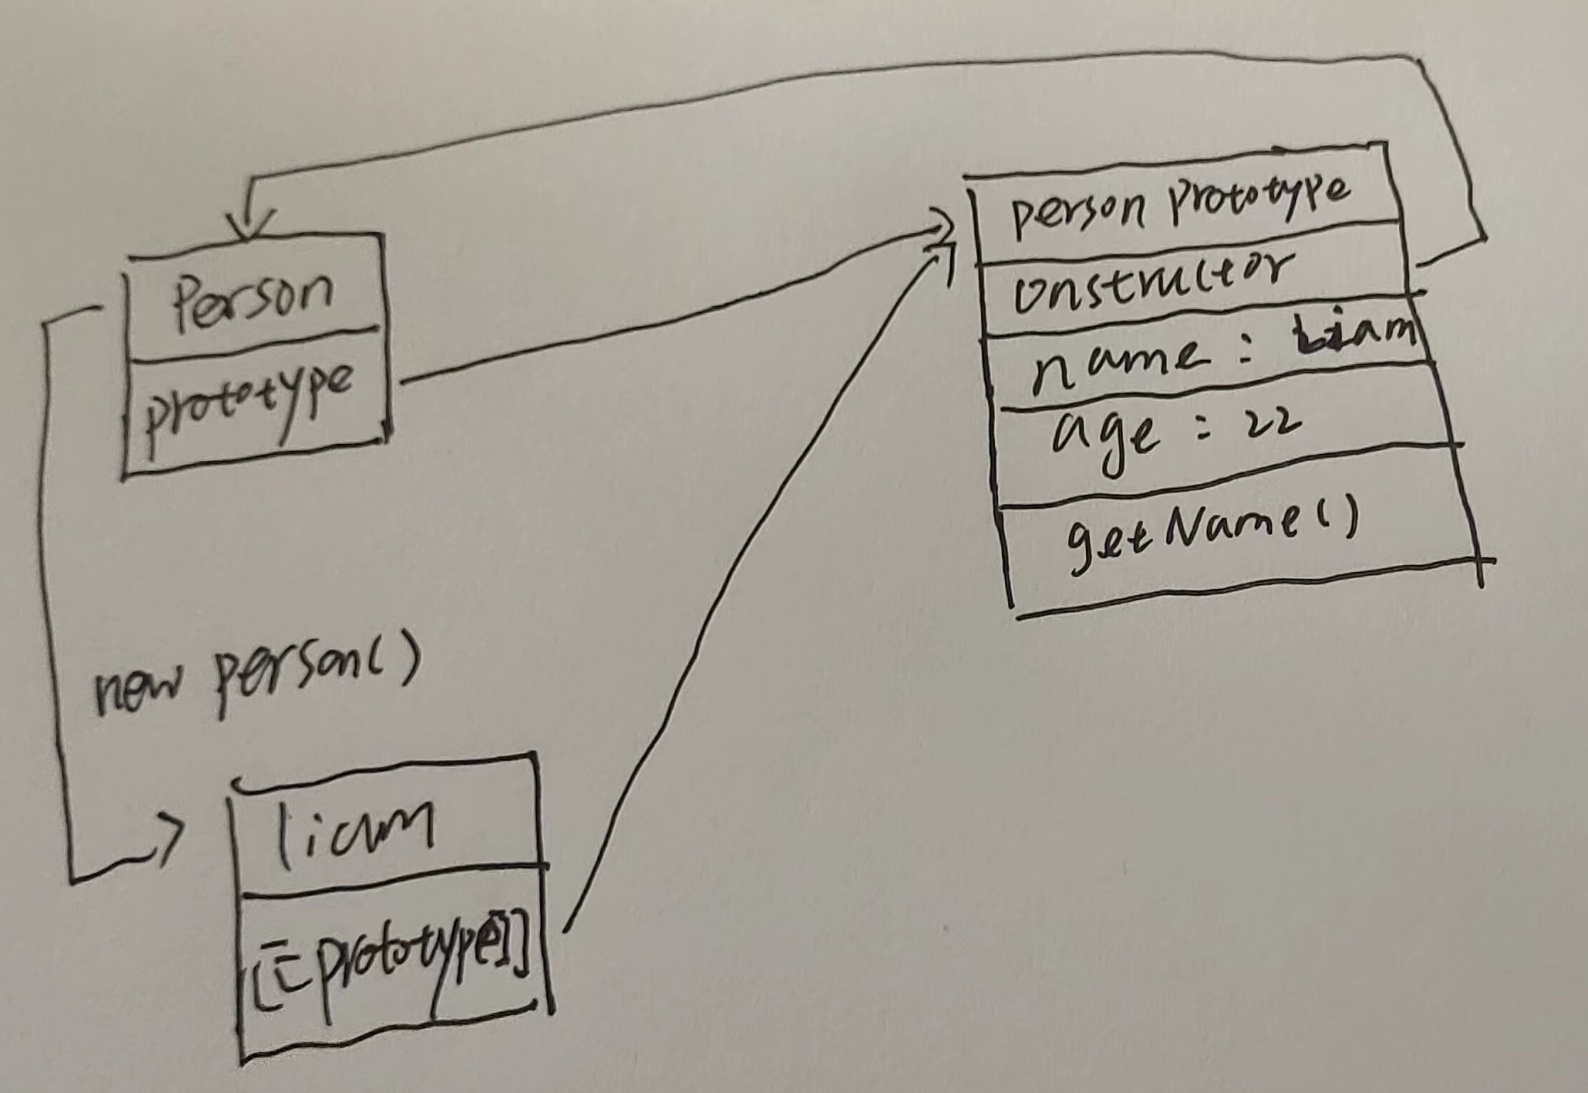 Person
prototype
person prototype
onstructor
name : Liam
age : 22
getName()
new person()
liam
[[prototype]]